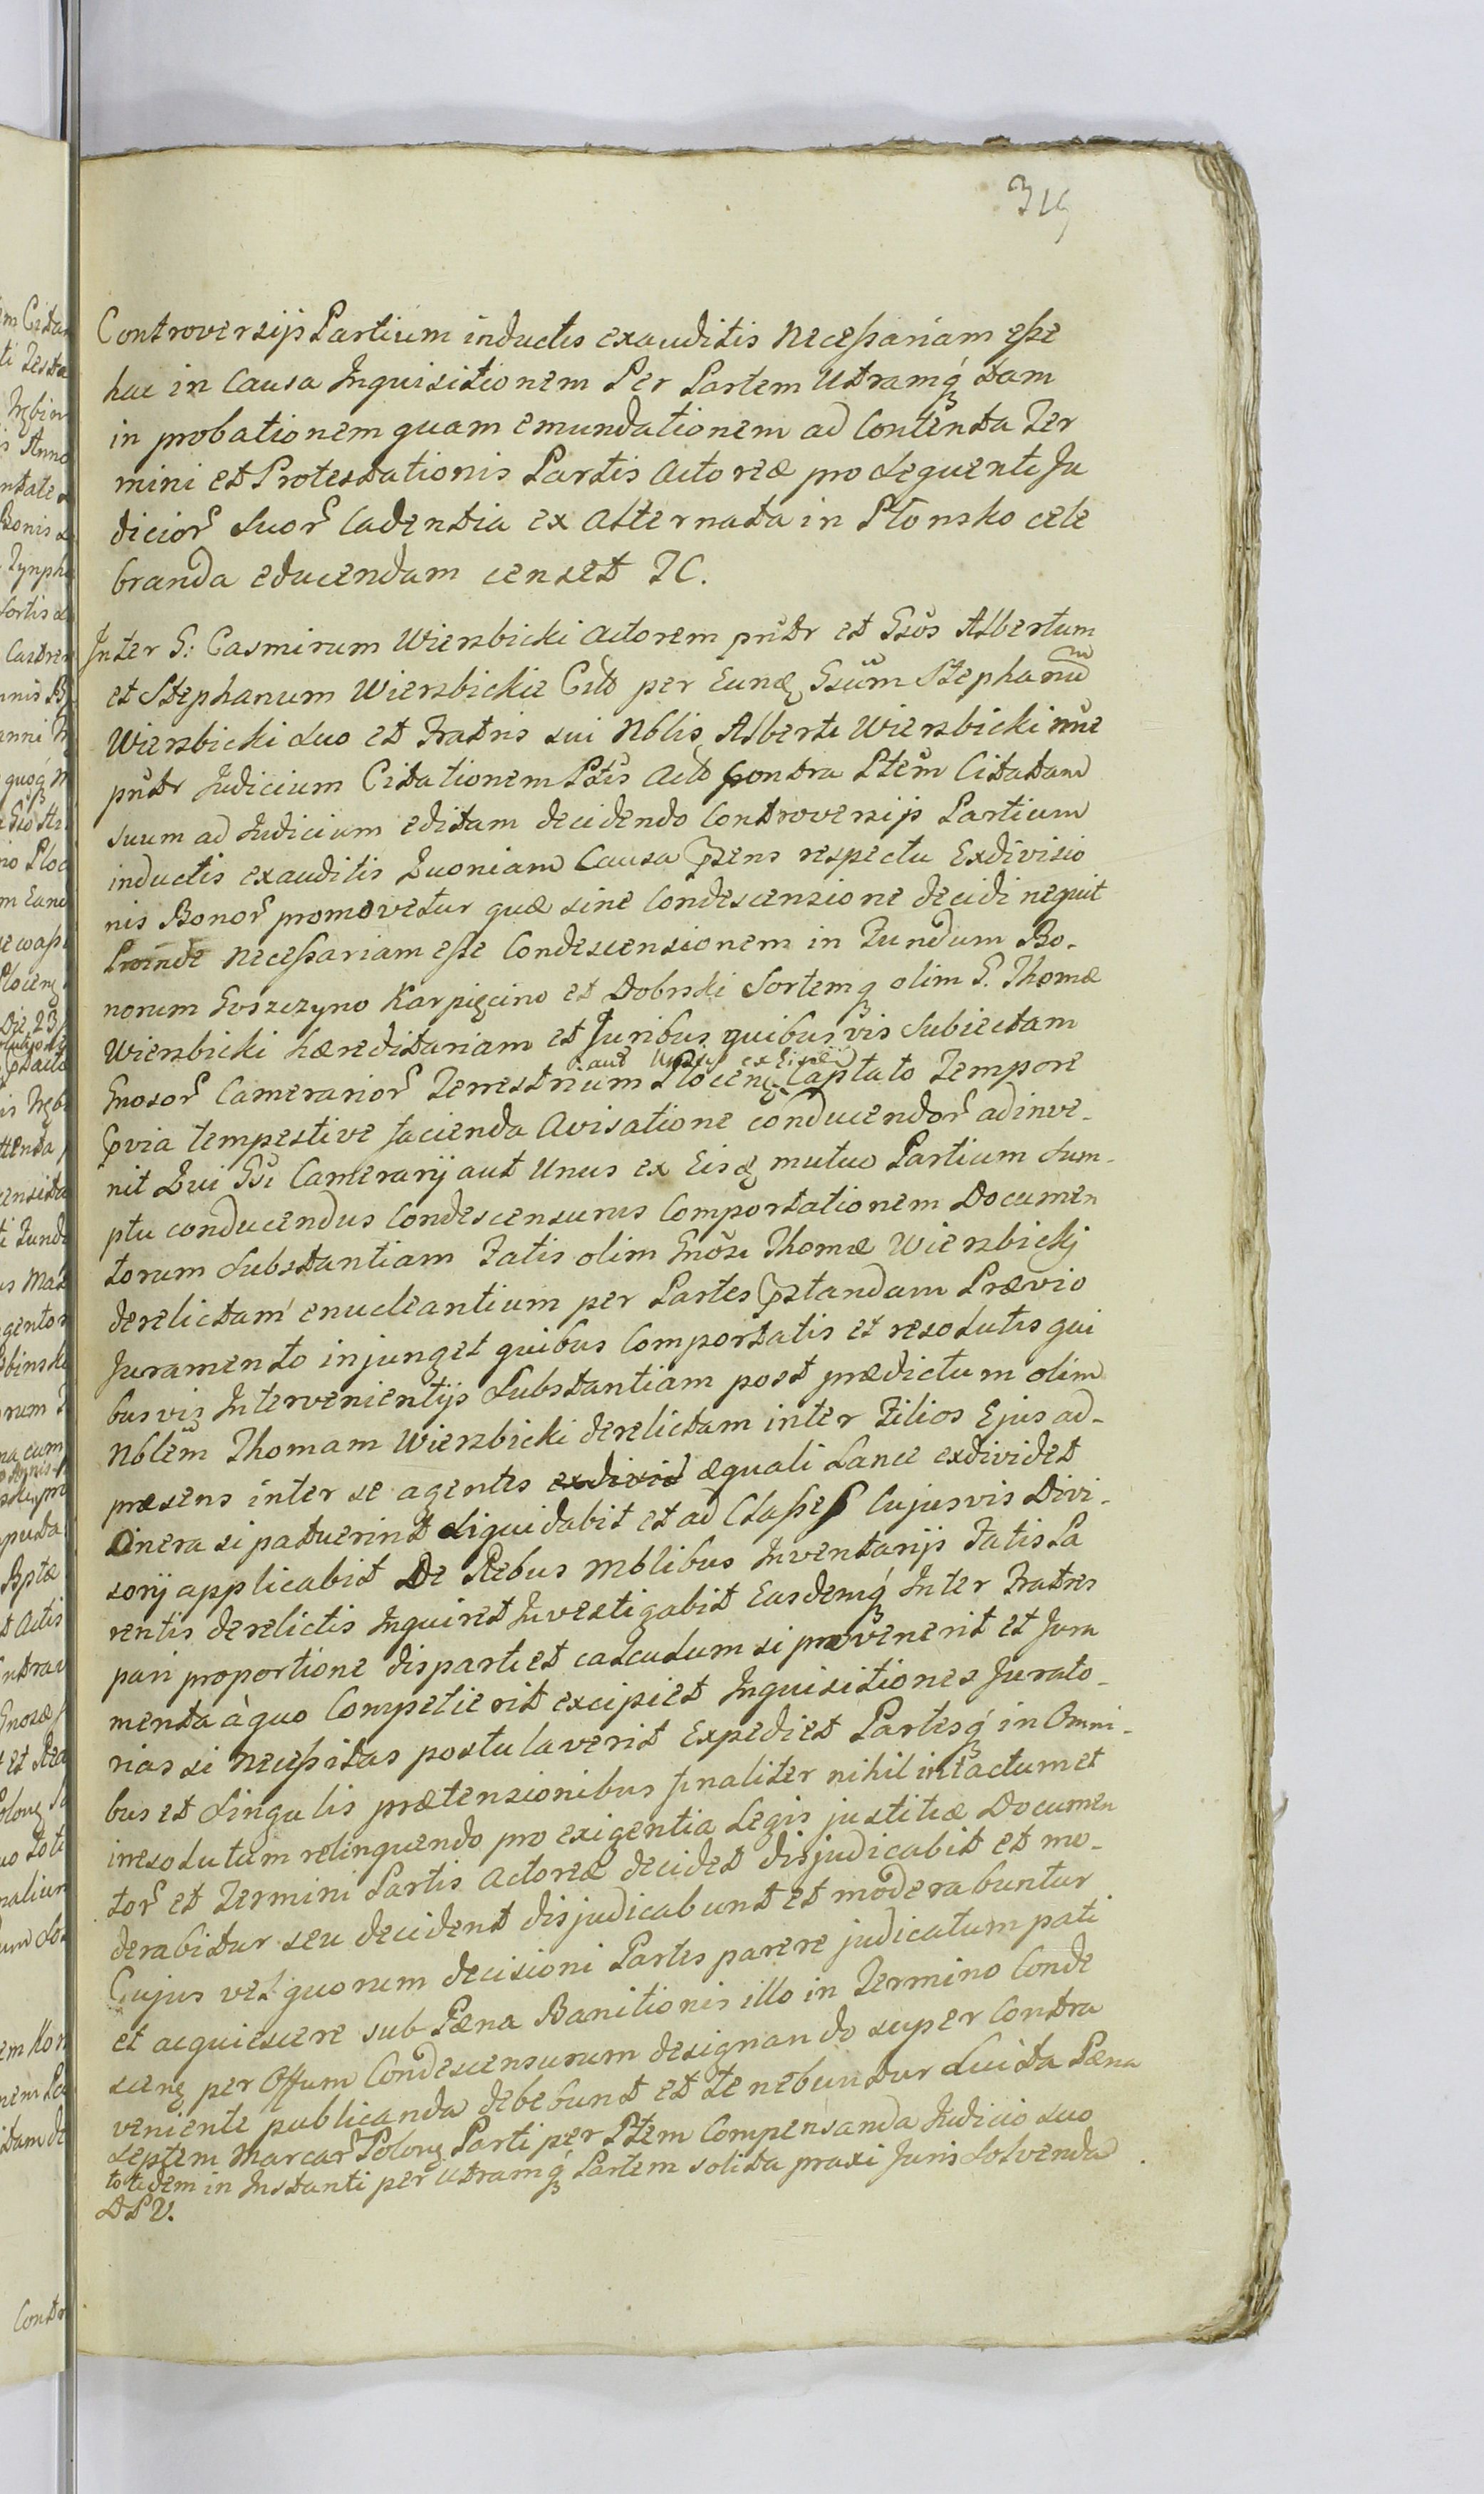 319
Controversijs Partium inductis exauditis necessariam esse
hac in Causa Inquisitionem Per Partem Utramq́ tam
in probationem quam emundationem ad Contenta Ter
mini et Protestationis Partis Actoreæ pro sequenti Ju
dicior̃ Suor̃ Cadentia ex Alternata in Płonsko cele
branda educendam censet TC.
Inter G: Casmirum Wierzbicki Actorem pñtr et Gsos Albertum
et Stephanum Wierzbickie Citt per Eund Gsum Stephanum
Wierzbicki suo et Fratris sui Nblis Alberti Wierzbicki nñe
pñtr Judicium Citationem Ptis Act Contra Ptem Citatam
suum ad Judicium editam decidendo Controversijs Partium
inductis exauditis Quoniam Causa p̃sens respectu Exdivisio
nis Bonor̃ promovetur quæ sine Condescensione decidi nequit
Proinde necessariam esse Condescensionem in Fundum Bo-
norum Goszczyno Karpięcino et Dobrski Sortemq olim G. Thomæ
Wierzbicki hæreditariam et Juribus quibusvis Subiectam
aut Unius ex Eisd
Gnosor̃ Camerarior̃ Terrestrium Plocen Captato Tempore
p̃via tempestive facienda Avisatione conducendor̃ adinve-
nit Qui Gsi Camerarij aut Unus ex Eisd mutuo Partium Sum-
ptu conducendus Condescensurus Comportationem Documen
torum Substantiam Fatis olim Gnosi Thomæ Wierzbickj
derelictam enucleantium per Partes p̃standam Prævio
Juramento injunget quibus Comportatis et resolutis qui
busvis Intervenientijs Substantiam post prædictum olim
Nblem Thomam Wierzbicki derelictam inter Filios Ejus ad-
præsens inter se agentes exdivid æquali Lance exdividet
Onera si patuerint Liquidabit et ad Classes Cujusvis Divi-
sorij applicabit De Rebus Mblibus Inventarijs Fatis Pa
rentis derelictis Inquiret Investigabit Easdemq́ Inter Fratres
pari proportione dispartiet calculum si provenerit et Jura
menta à quo Competierit excipiet Inquisitiones Jurato-
rias si necessitas postulaverit Expediet Partesq́ in Omni-
bus et Singulis prætensionibus finaliter nihil intactum et
irresolutum relinquendo pro exigentia Legis justitiæ Documen
tor̃ et Termini Partis Actoreæ decidet disjudicabit et mo-
derabitur seu decident disjudicabunt et moderabuntur
Cujus vel quorum decisioni Partes parere judicatum pati
et acquiescere sub Pæna Banitionis illo in Termino Conde
scen per Offum Condescensurum designando super Contra
veniente publicanda debebunt et tenebuntur Luita Pæna
Septem Marcar̃ Polon Parti per Ptem Compensanda Judicio suo
totidem in Instanti per Utramq́ Partem solita praxi Juris Solvenda
DPV.